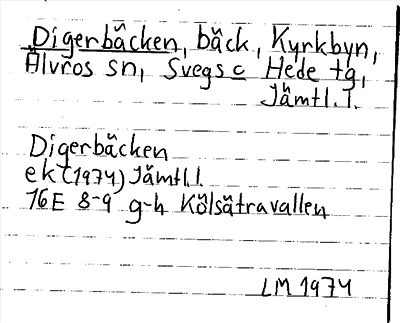 Digerbäcken, bäck, Kyrkbyn,
Älvros sn, Svegs o Hede tg,
Jämtl. l.
Digerbäcken
ek (1974) Jämtl. l.
16E 8-9 g-h Kölsätravallen
LM 1974